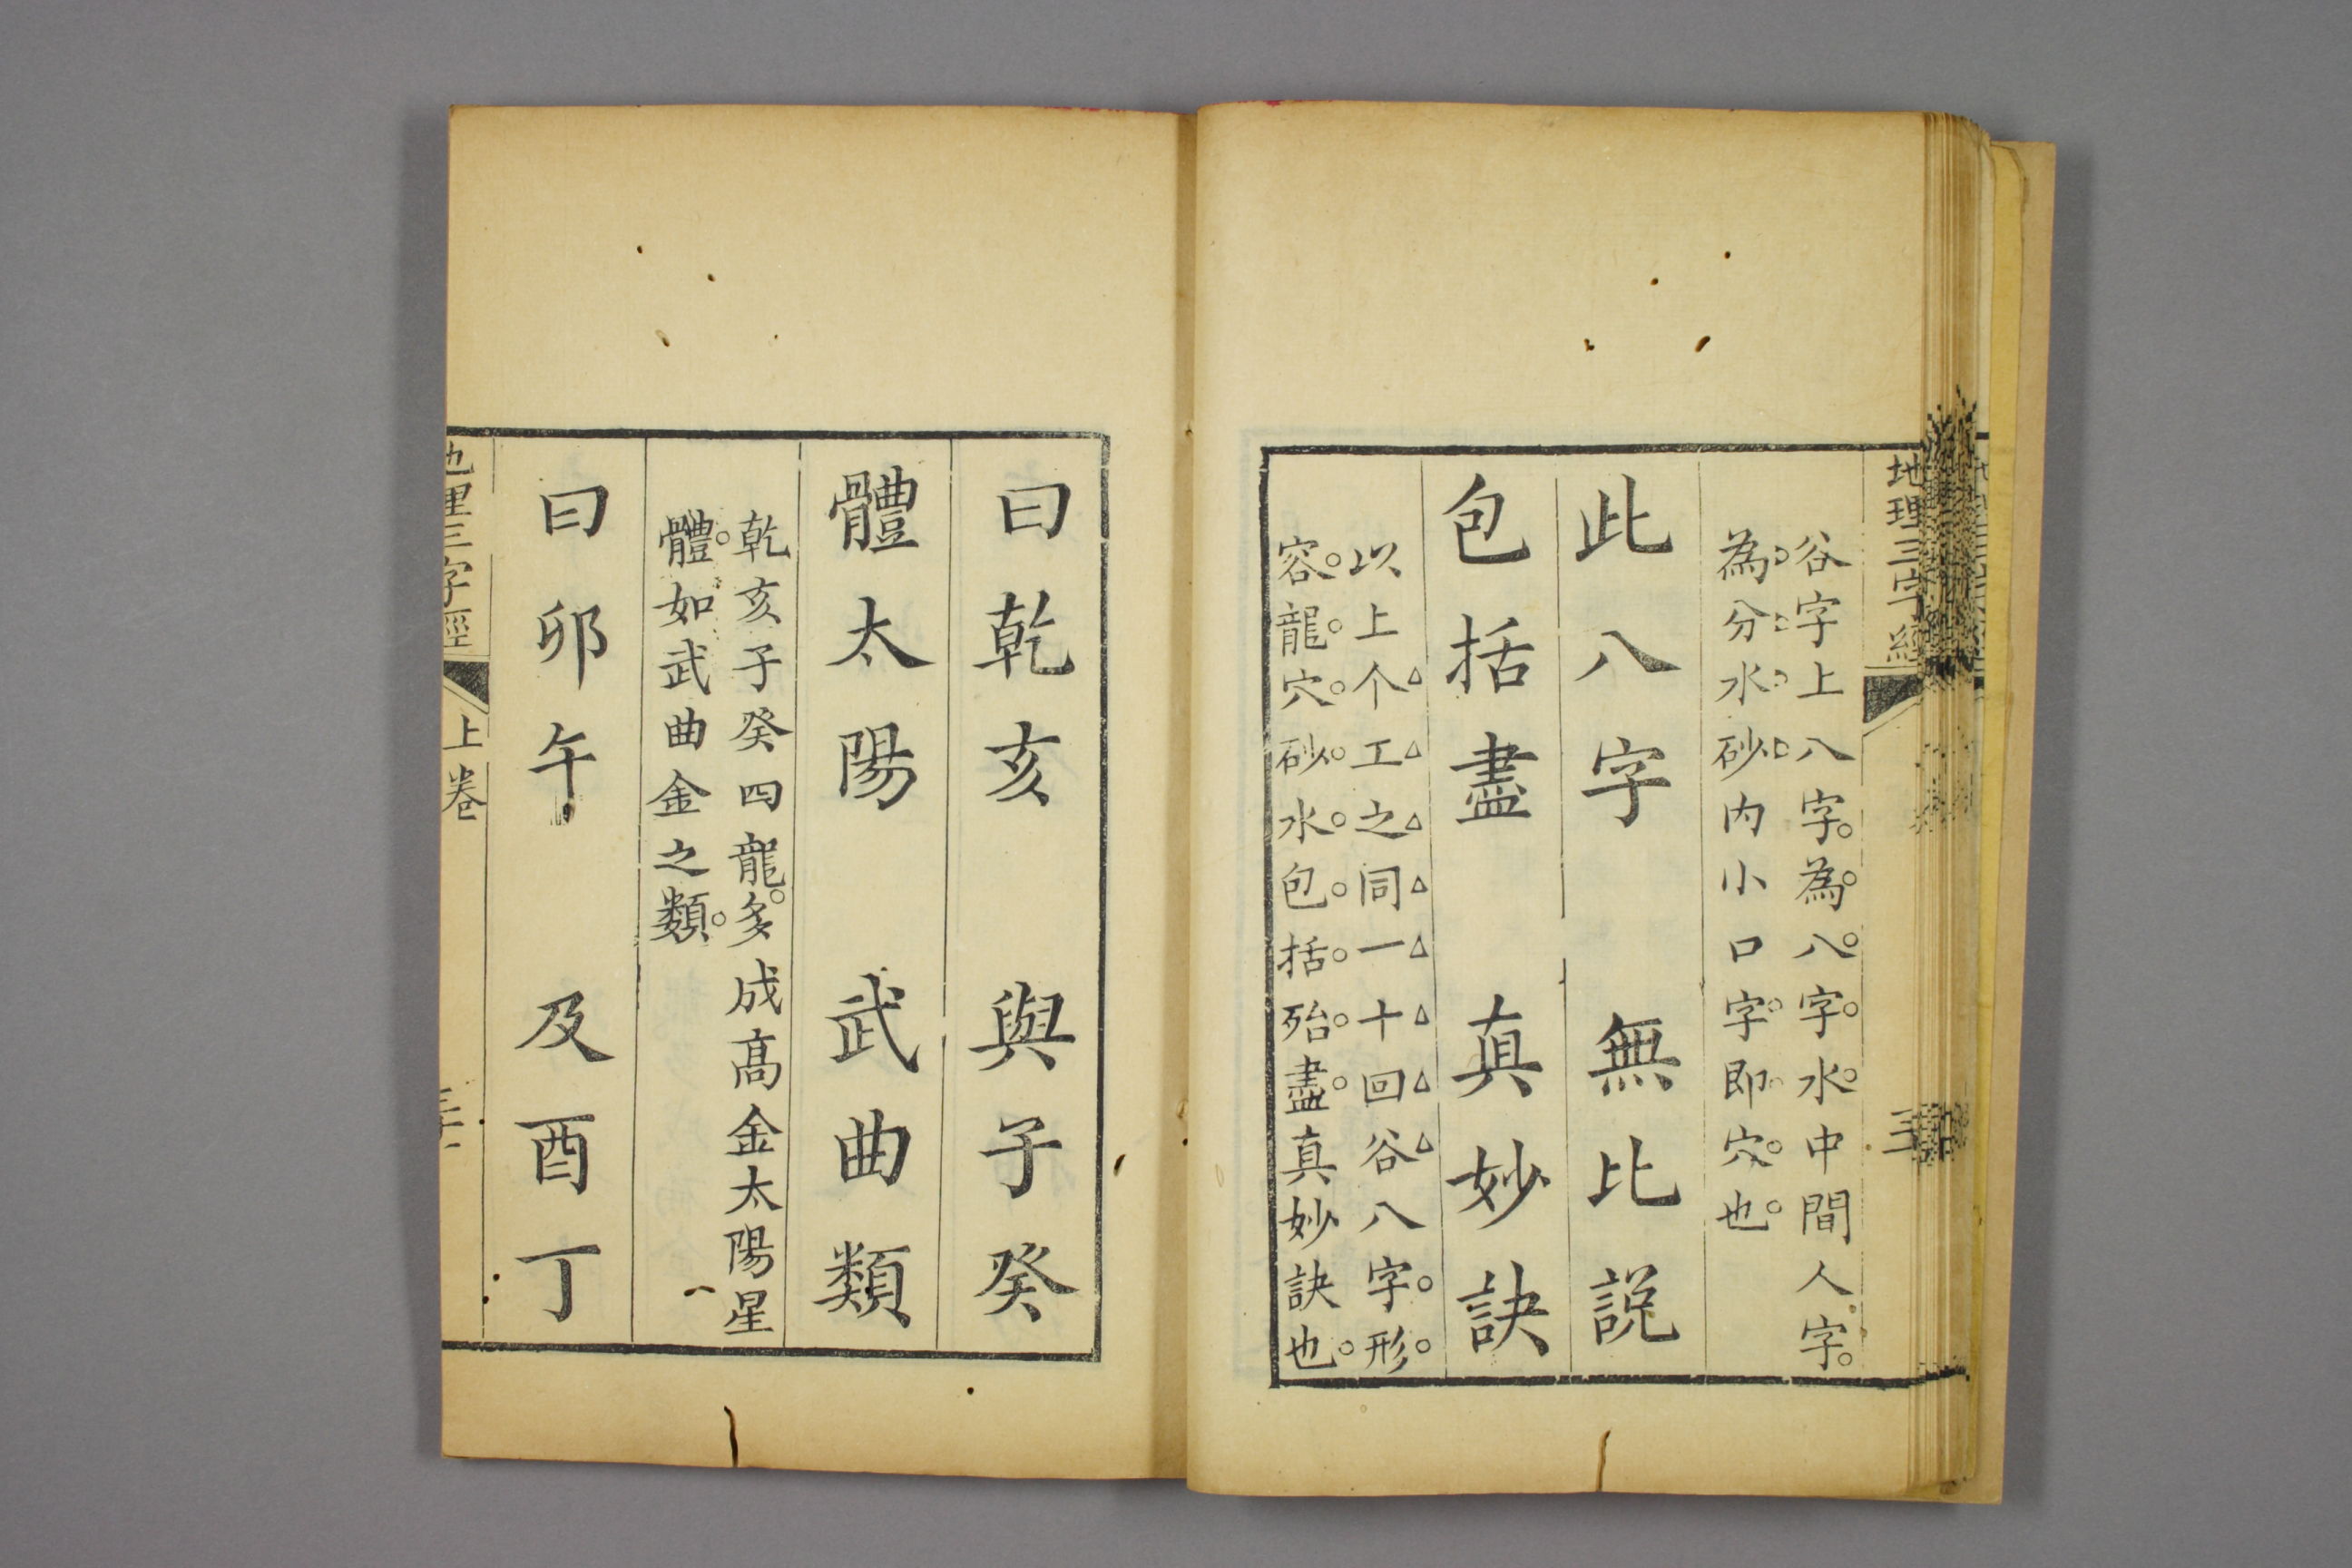 地理三字經
谷字上八字為八字水中間人字
為分水砂內小口字即穴也
此八字　無比説
包括盡　真妙訣
以上个工之同一十回谷八字形
容龍穴砂水包括殆盡真妙訣也
曰乾亥　與子癸
體太陽　武曲類
乾亥子癸四龍多成高金太陽星
體如武曲金之類
曰卯午　及酉丁
地理三字經　上卷